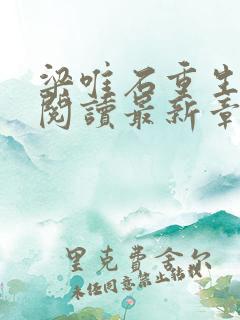 梁唯石重生
閱讀最新章
里克費舍尔
未经同意禁止转载